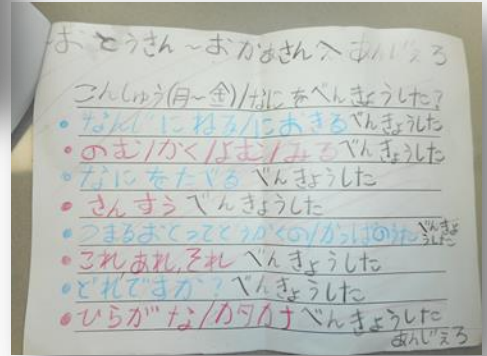 おとうさん～おかあさんへ あんじぇろ
こんしゅう(月～金)/なにをべんきょうした?
• なんじにねる/におきるべんきょうした
• のむ/かく/よむ/みるべんきょうした
• なにをたべるべんきょうした
• さんすうべんきょうした
• つまるおとってとうがくの/かっぱのうたべんきょうした
• これ,あれ,それべんきょうした
• どれですか?べんきょうした
• ひらがな/カタカナべんきょうした
あんじぇろ